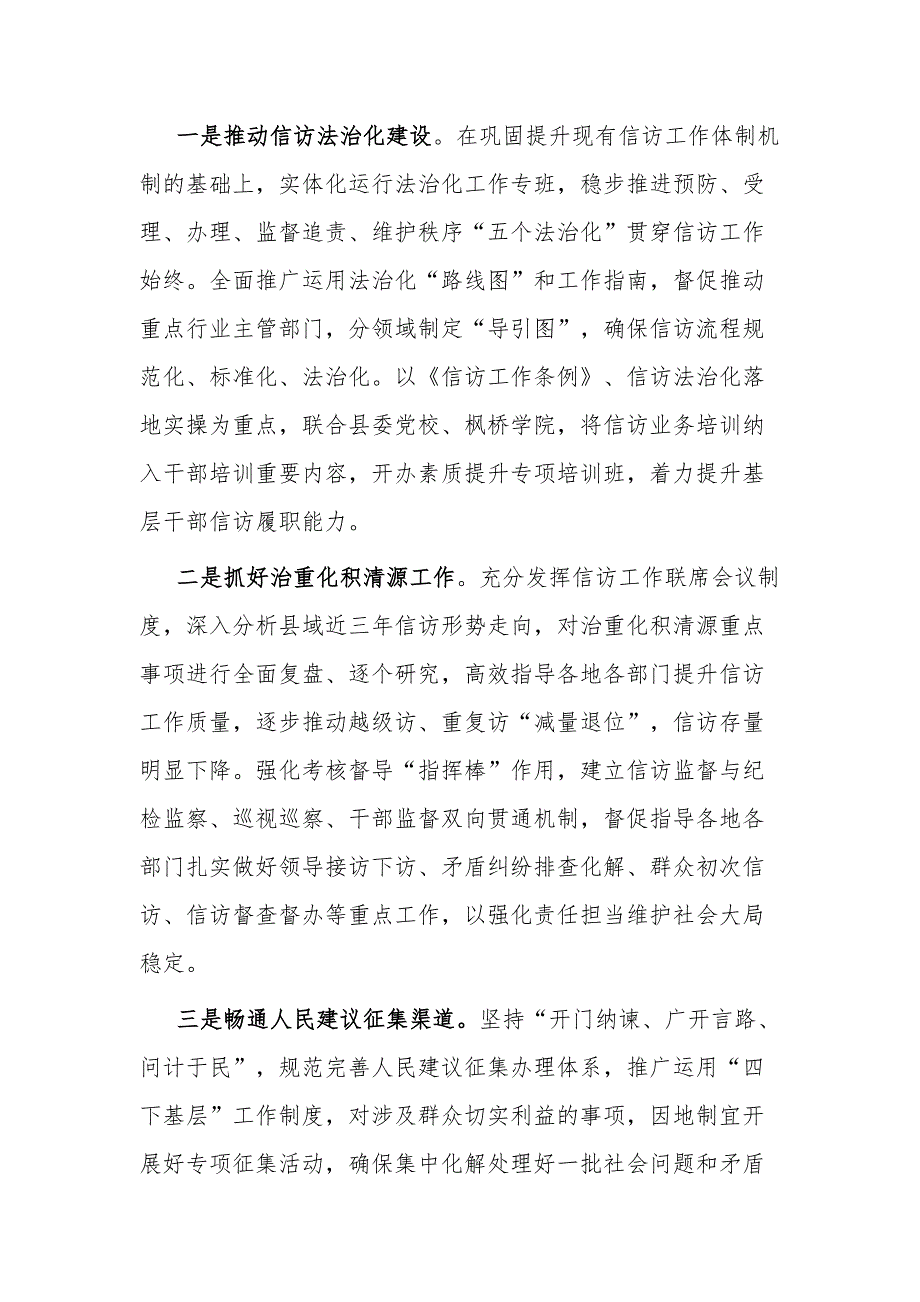 一是推动信访法治化建设。在巩固提升现有信访工作体制机
制的基础上，实体化运行法治化工作专班，稳步推进预防、受
理、办理、监督追责、维护秩序“五个法治化”贯穿信访工作
始终。全面推广运用法治化“路线图”和工作指南，督促推动
重点行业主管部门，分领域制定“导引图”，确保信访流程规
范化、标准化、法治化。以《信访工作条例》、信访法治化落
地实操为重点，联合县委党校、枫桥学院，将信访业务培训纳
入干部培训重要内容，开办素质提升专项培训班，着力提升基
层干部信访履职能力。
二是抓好治重化积清源工作。充分发挥信访工作联席会议制
度，深入分析县域近三年信访形势走向，对治重化积清源重点
事项进行全面复盘、逐个研究，高效指导各地各部门提升信访
工作质量，逐步推动越级访、重复访“减量退位”，信访存量
明显下降。强化考核督导“指挥棒”作用，建立信访监督与纪
检监察、巡视巡察、干部监督双向贯通机制，督促指导各地各
部门扎实做好领导接访下访、矛盾纠纷排查化解、群众初次信
访、信访督查督办等重点工作，以强化责任担当维护社会大局
稳定。
三是畅通人民建议征集渠道。坚持“开门纳谏、广开言路、
问计于民”，规范完善人民建议征集办理体系，推广运用“四
下基层”工作制度，对涉及群众切实利益的事项，因地制宜开
展好专项征集活动，确保集中化解处理好一批社会问题和矛盾